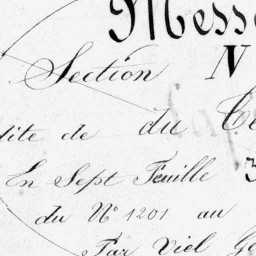 Mess
Section N
dite de du
En Sept Feuille 3
du N° 1201 au
Par Viel Ge